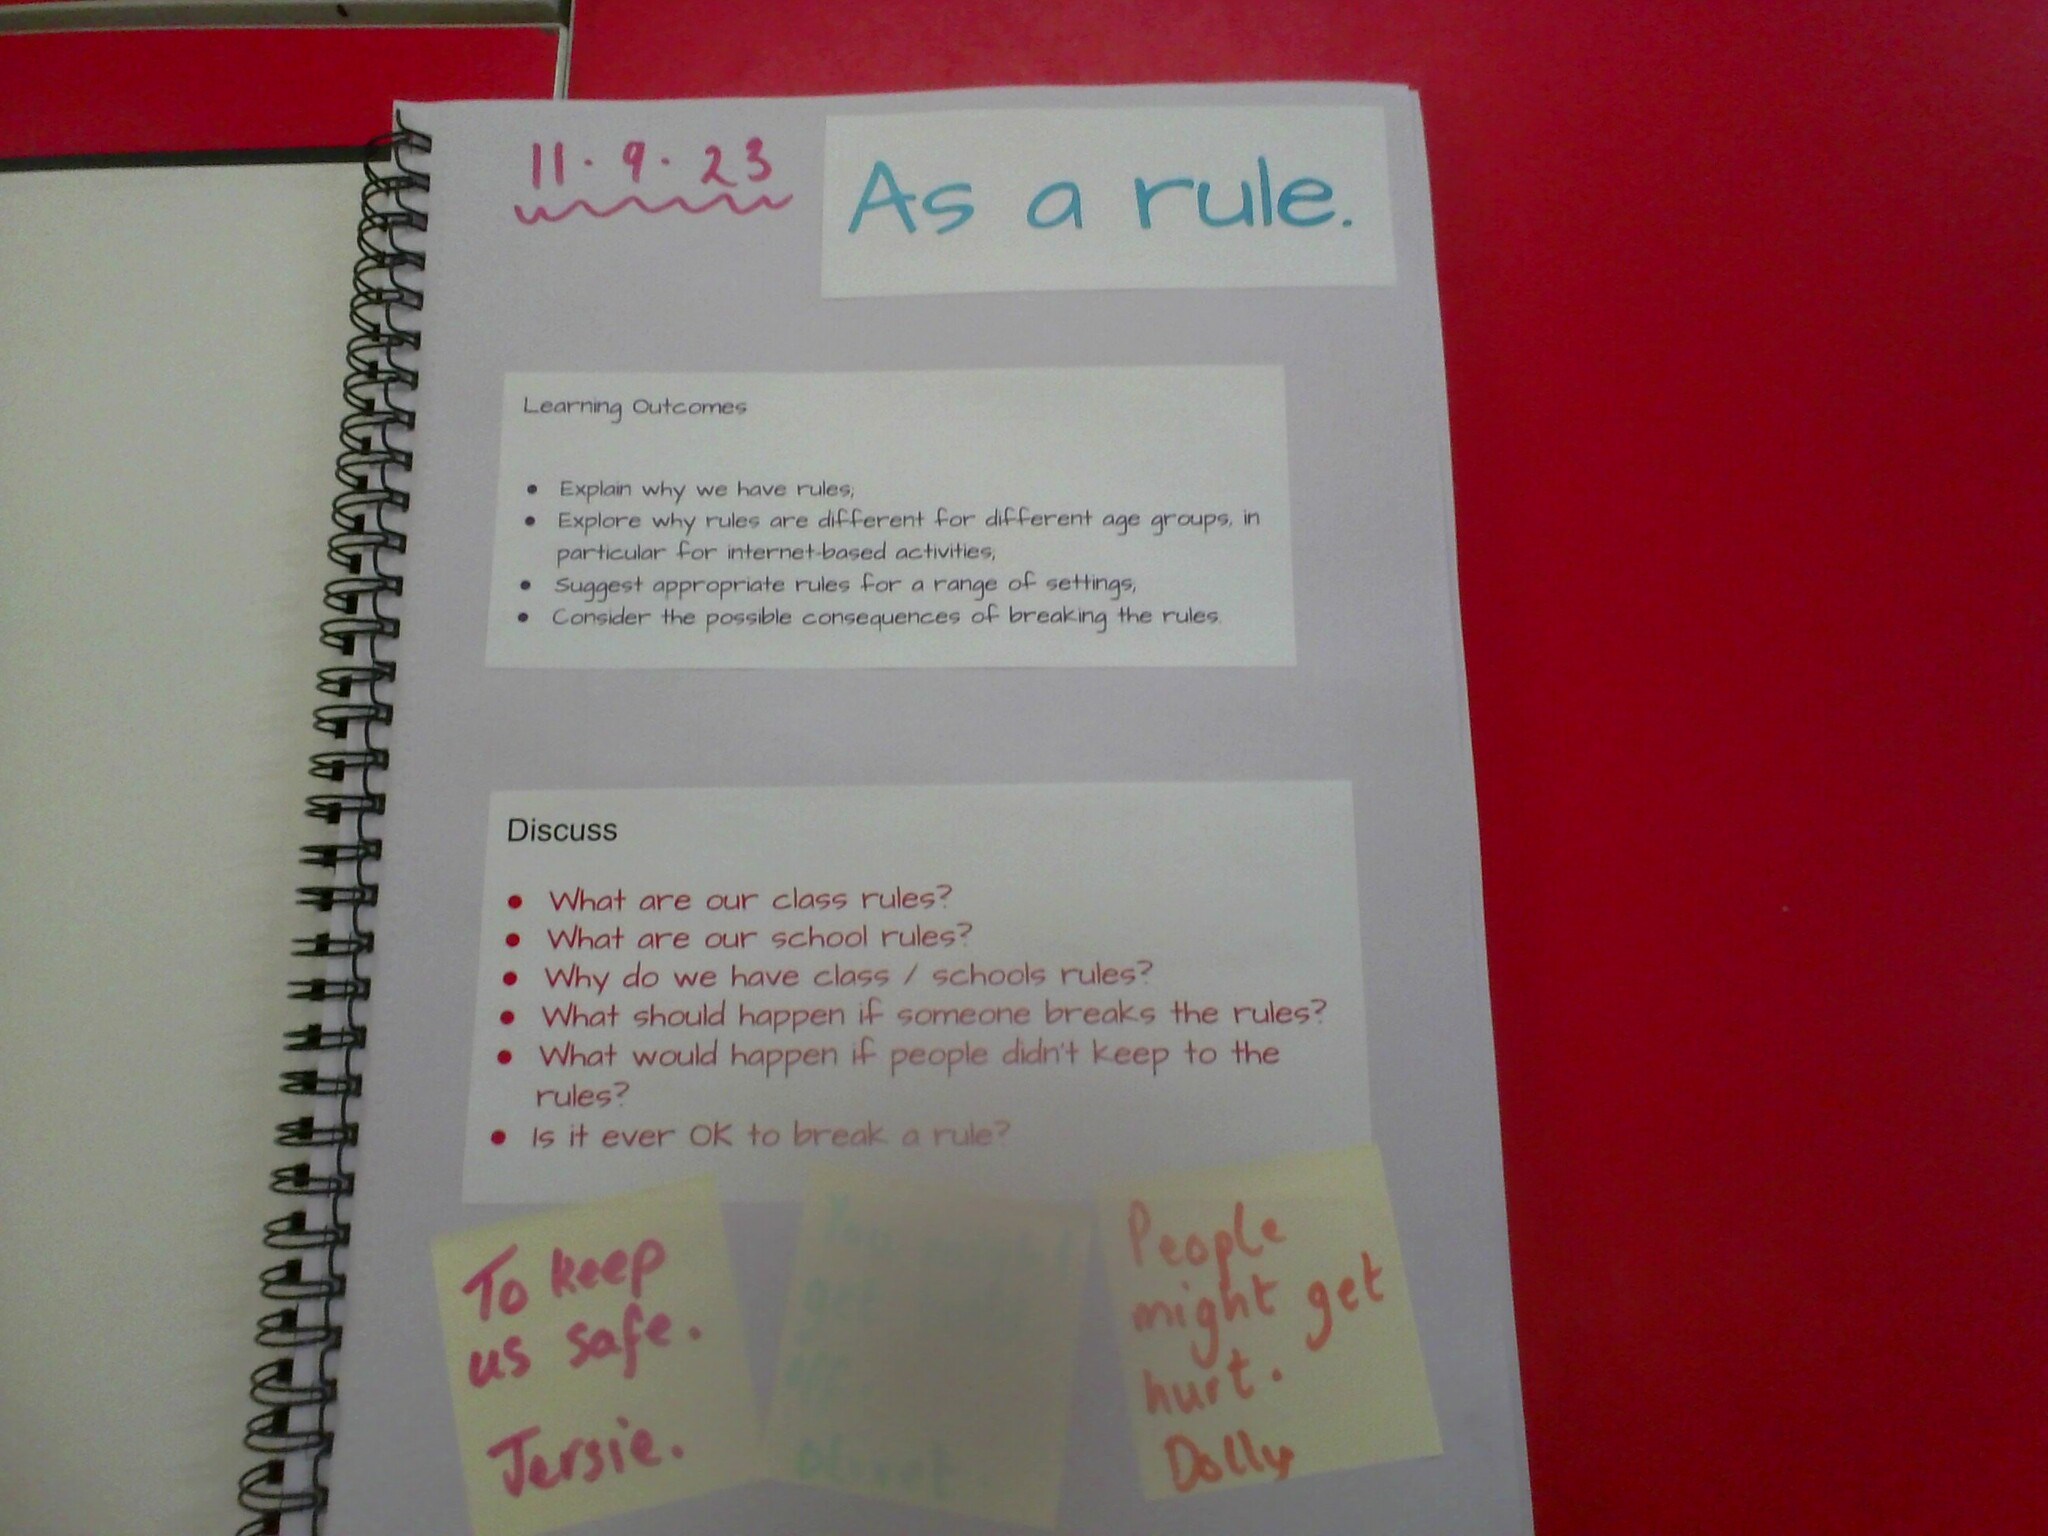 11.9.23
As a rule.
Learning Outcomes
• Explain why we have rules;
• Explore why rules are different for different age groups, in
particular for internet-based activities;
• Suggest appropriate rules for a range of settings;
• Consider the possible consequences of breaking the rules.
Discuss
• What are our class rules?
• What are our school rules?
• Why do we have class / schools rules?
• What should happen if someone breaks the rules?
• What would happen if people didn't keep to the
rules?
• Is it ever OK to break a rule?
To keep
us safe.
Jersie.
You might
get
People
might get
hurt.
Dolly